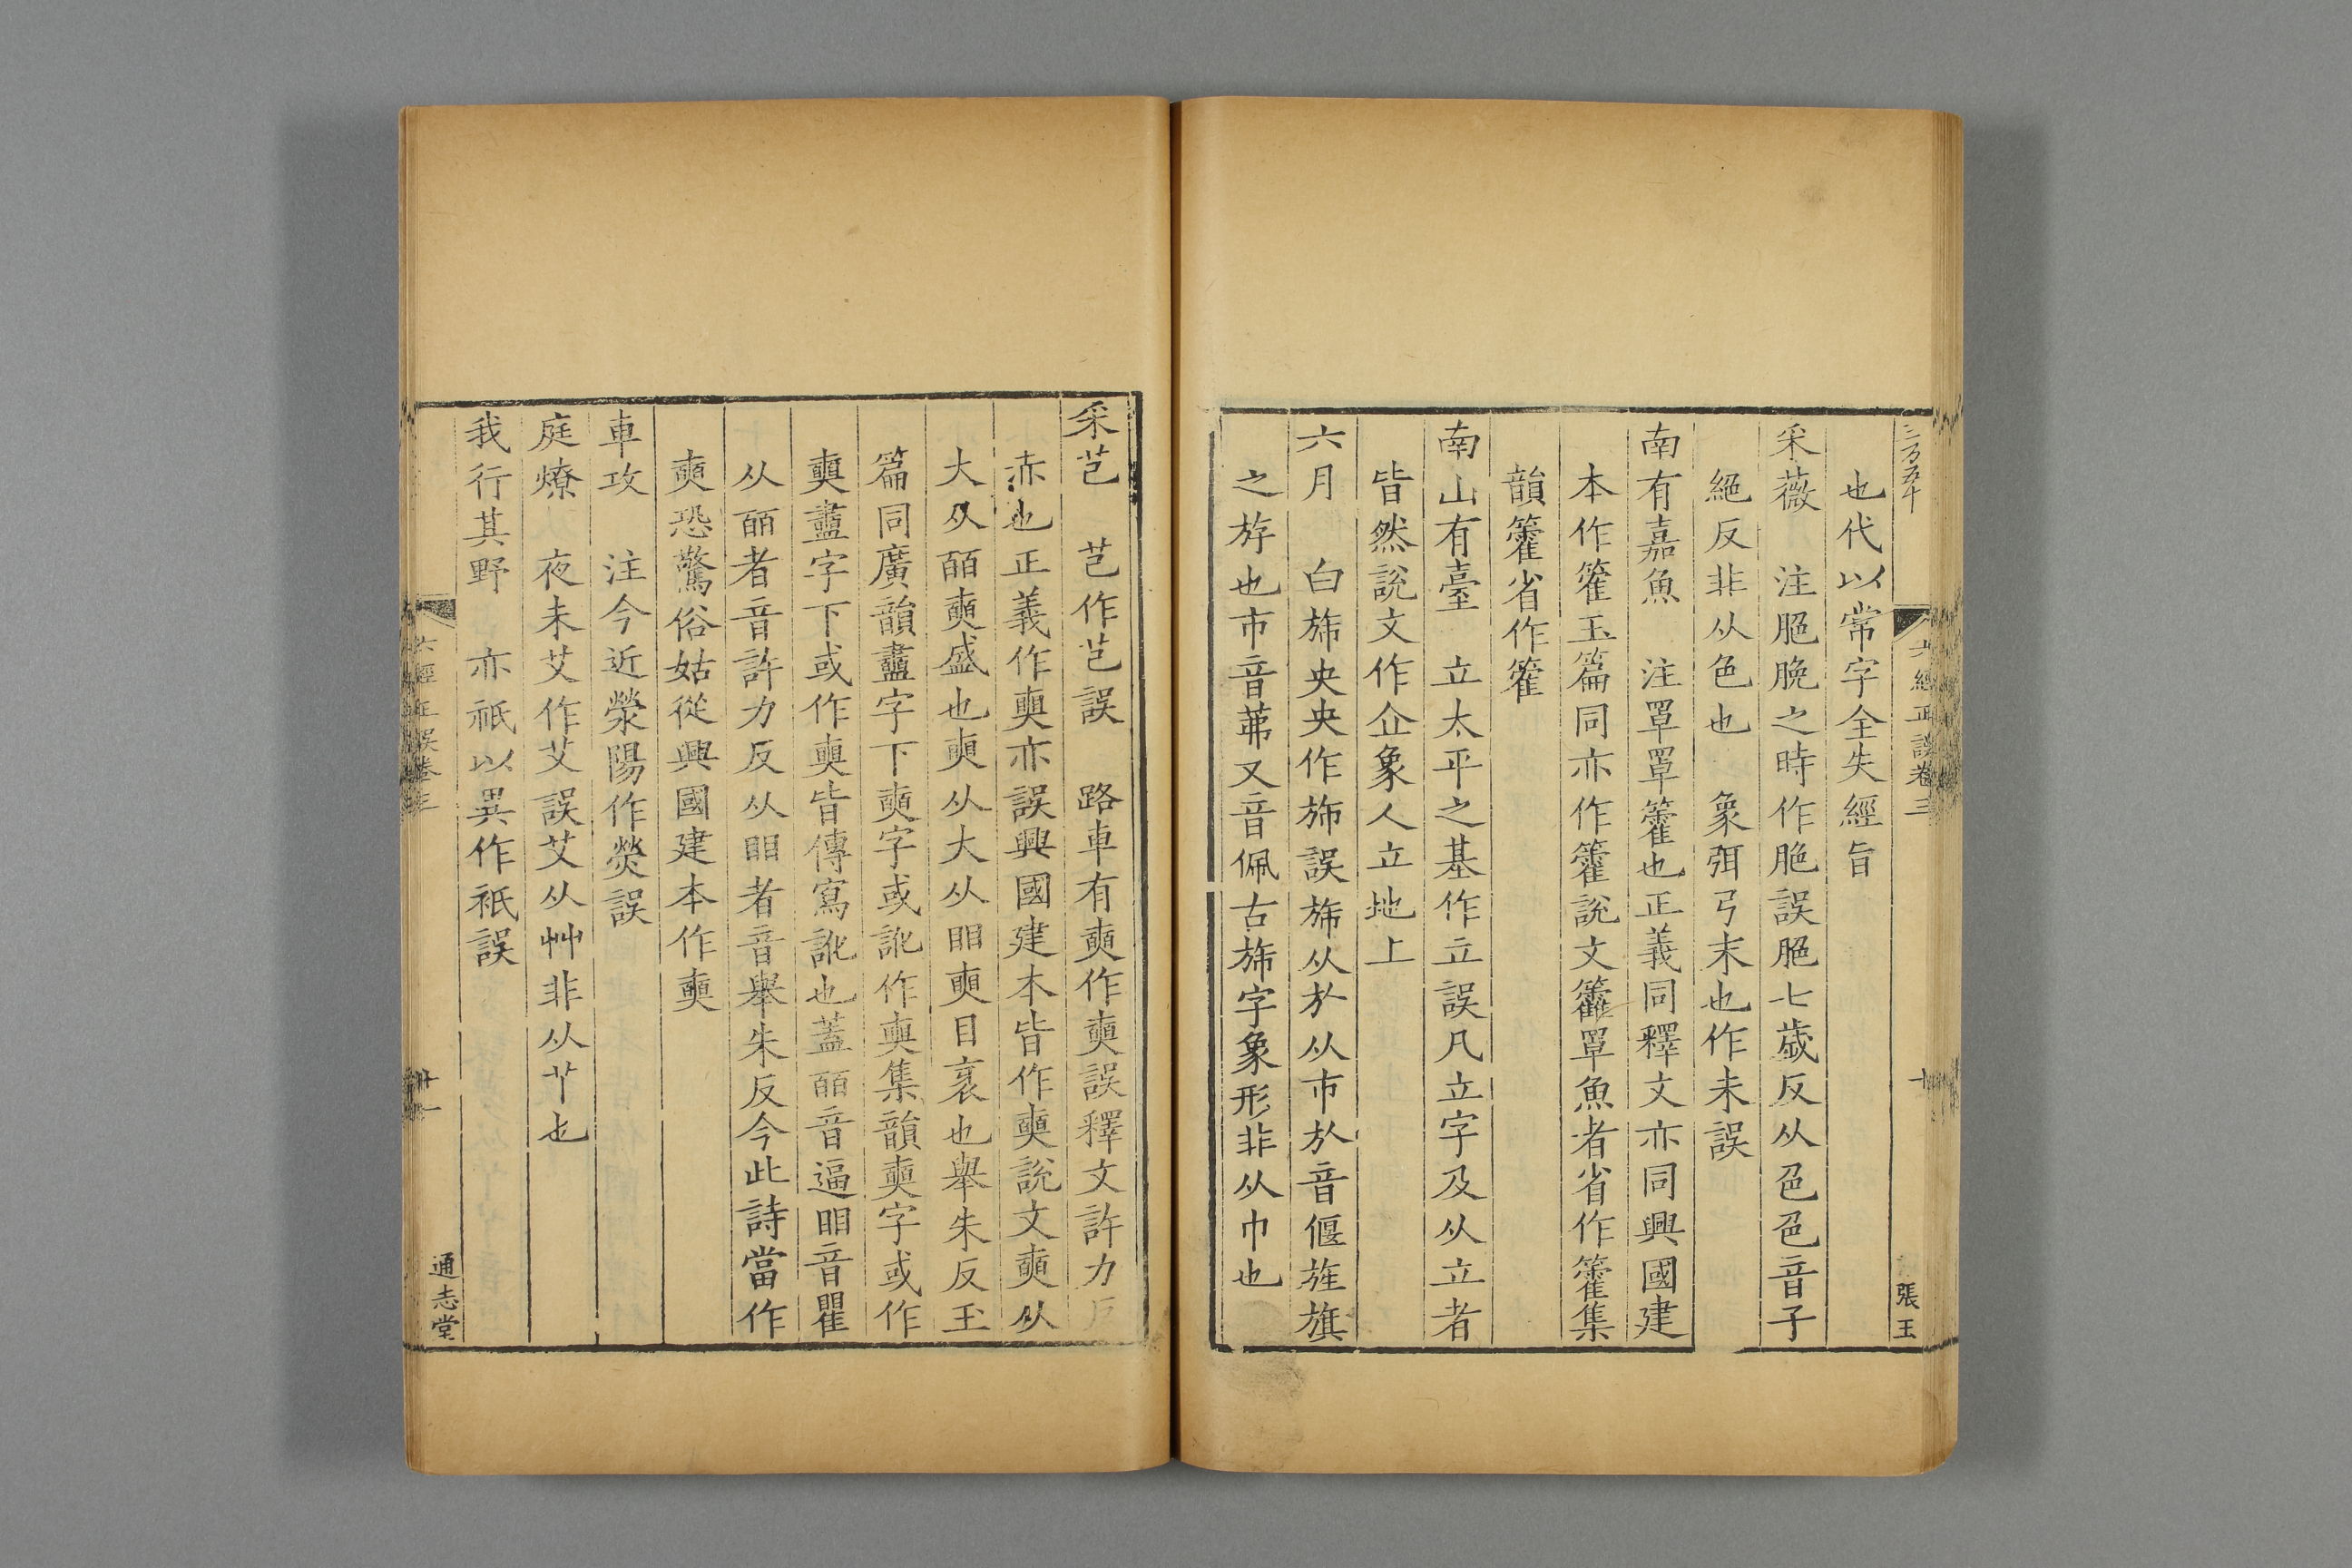 六經正誤卷三
十
張玉
也代以常字全失經旨
采薇 注脃脕之時作脆誤脃七歲反从㔾色音子
絕反非从色也 象弭弓末也作未誤
南有嘉魚 注罩罩籗也正義同釋文亦同興國建
本作篧玉篇同亦作籗說文籱罩魚者省作籗集
韻籗省作篧
南山有臺 立太平之基作立誤凡立字及从立者
皆然說文作仚象人立地上
六月 白斾央央作斾誤斾从㫃从巿㫃音偃旌旗
之斿也巿音茀又音佩古斾字象形非从巾也
采芑 芑作芑誤 路車有奭作奭誤釋文許力反
赤也正義作奭亦誤興國建本皆作奭說文奭从
大从皕奭盛也奭从大从䀠奭目衺也舉朱反玉
篇同廣韻衋字下奭字或訛作奭集韻奭字或作
奭衋字下或作奭皆傳寫訛也蓋皕音逼䀠音瞿
从皕者音許力反从䀠者音舉朱反今此詩當作
奭恐驚俗姑從興國建本作奭
車攻 注今近滎陽作熒誤
庭燎 夜未艾作艾誤艾从艸非从丷也
我行其野 亦祇以異作衹誤
六經正誤卷三
十一
通志堂